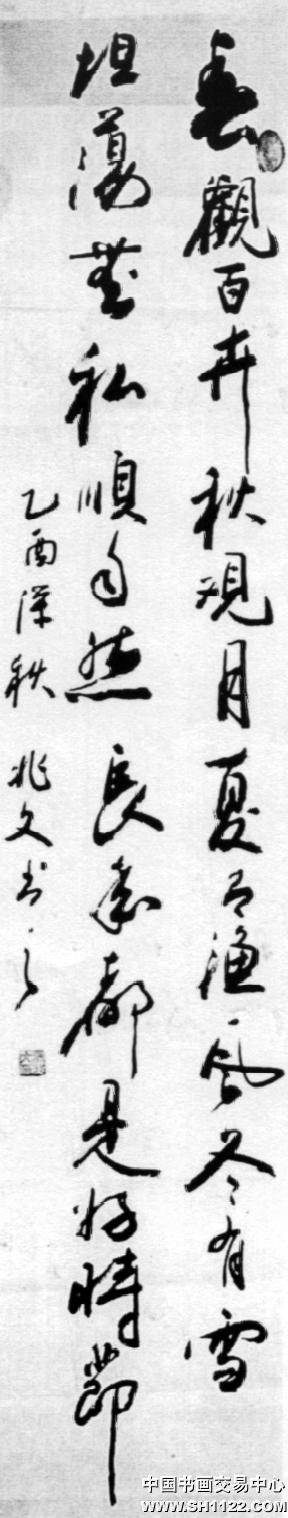 春觀百卉秋观月夏有渔風冬有雪
坦蕩無私順自然長年都是好時節
乙酉深秋 兆文书之
中国书画交易中心
www.SH1122.com